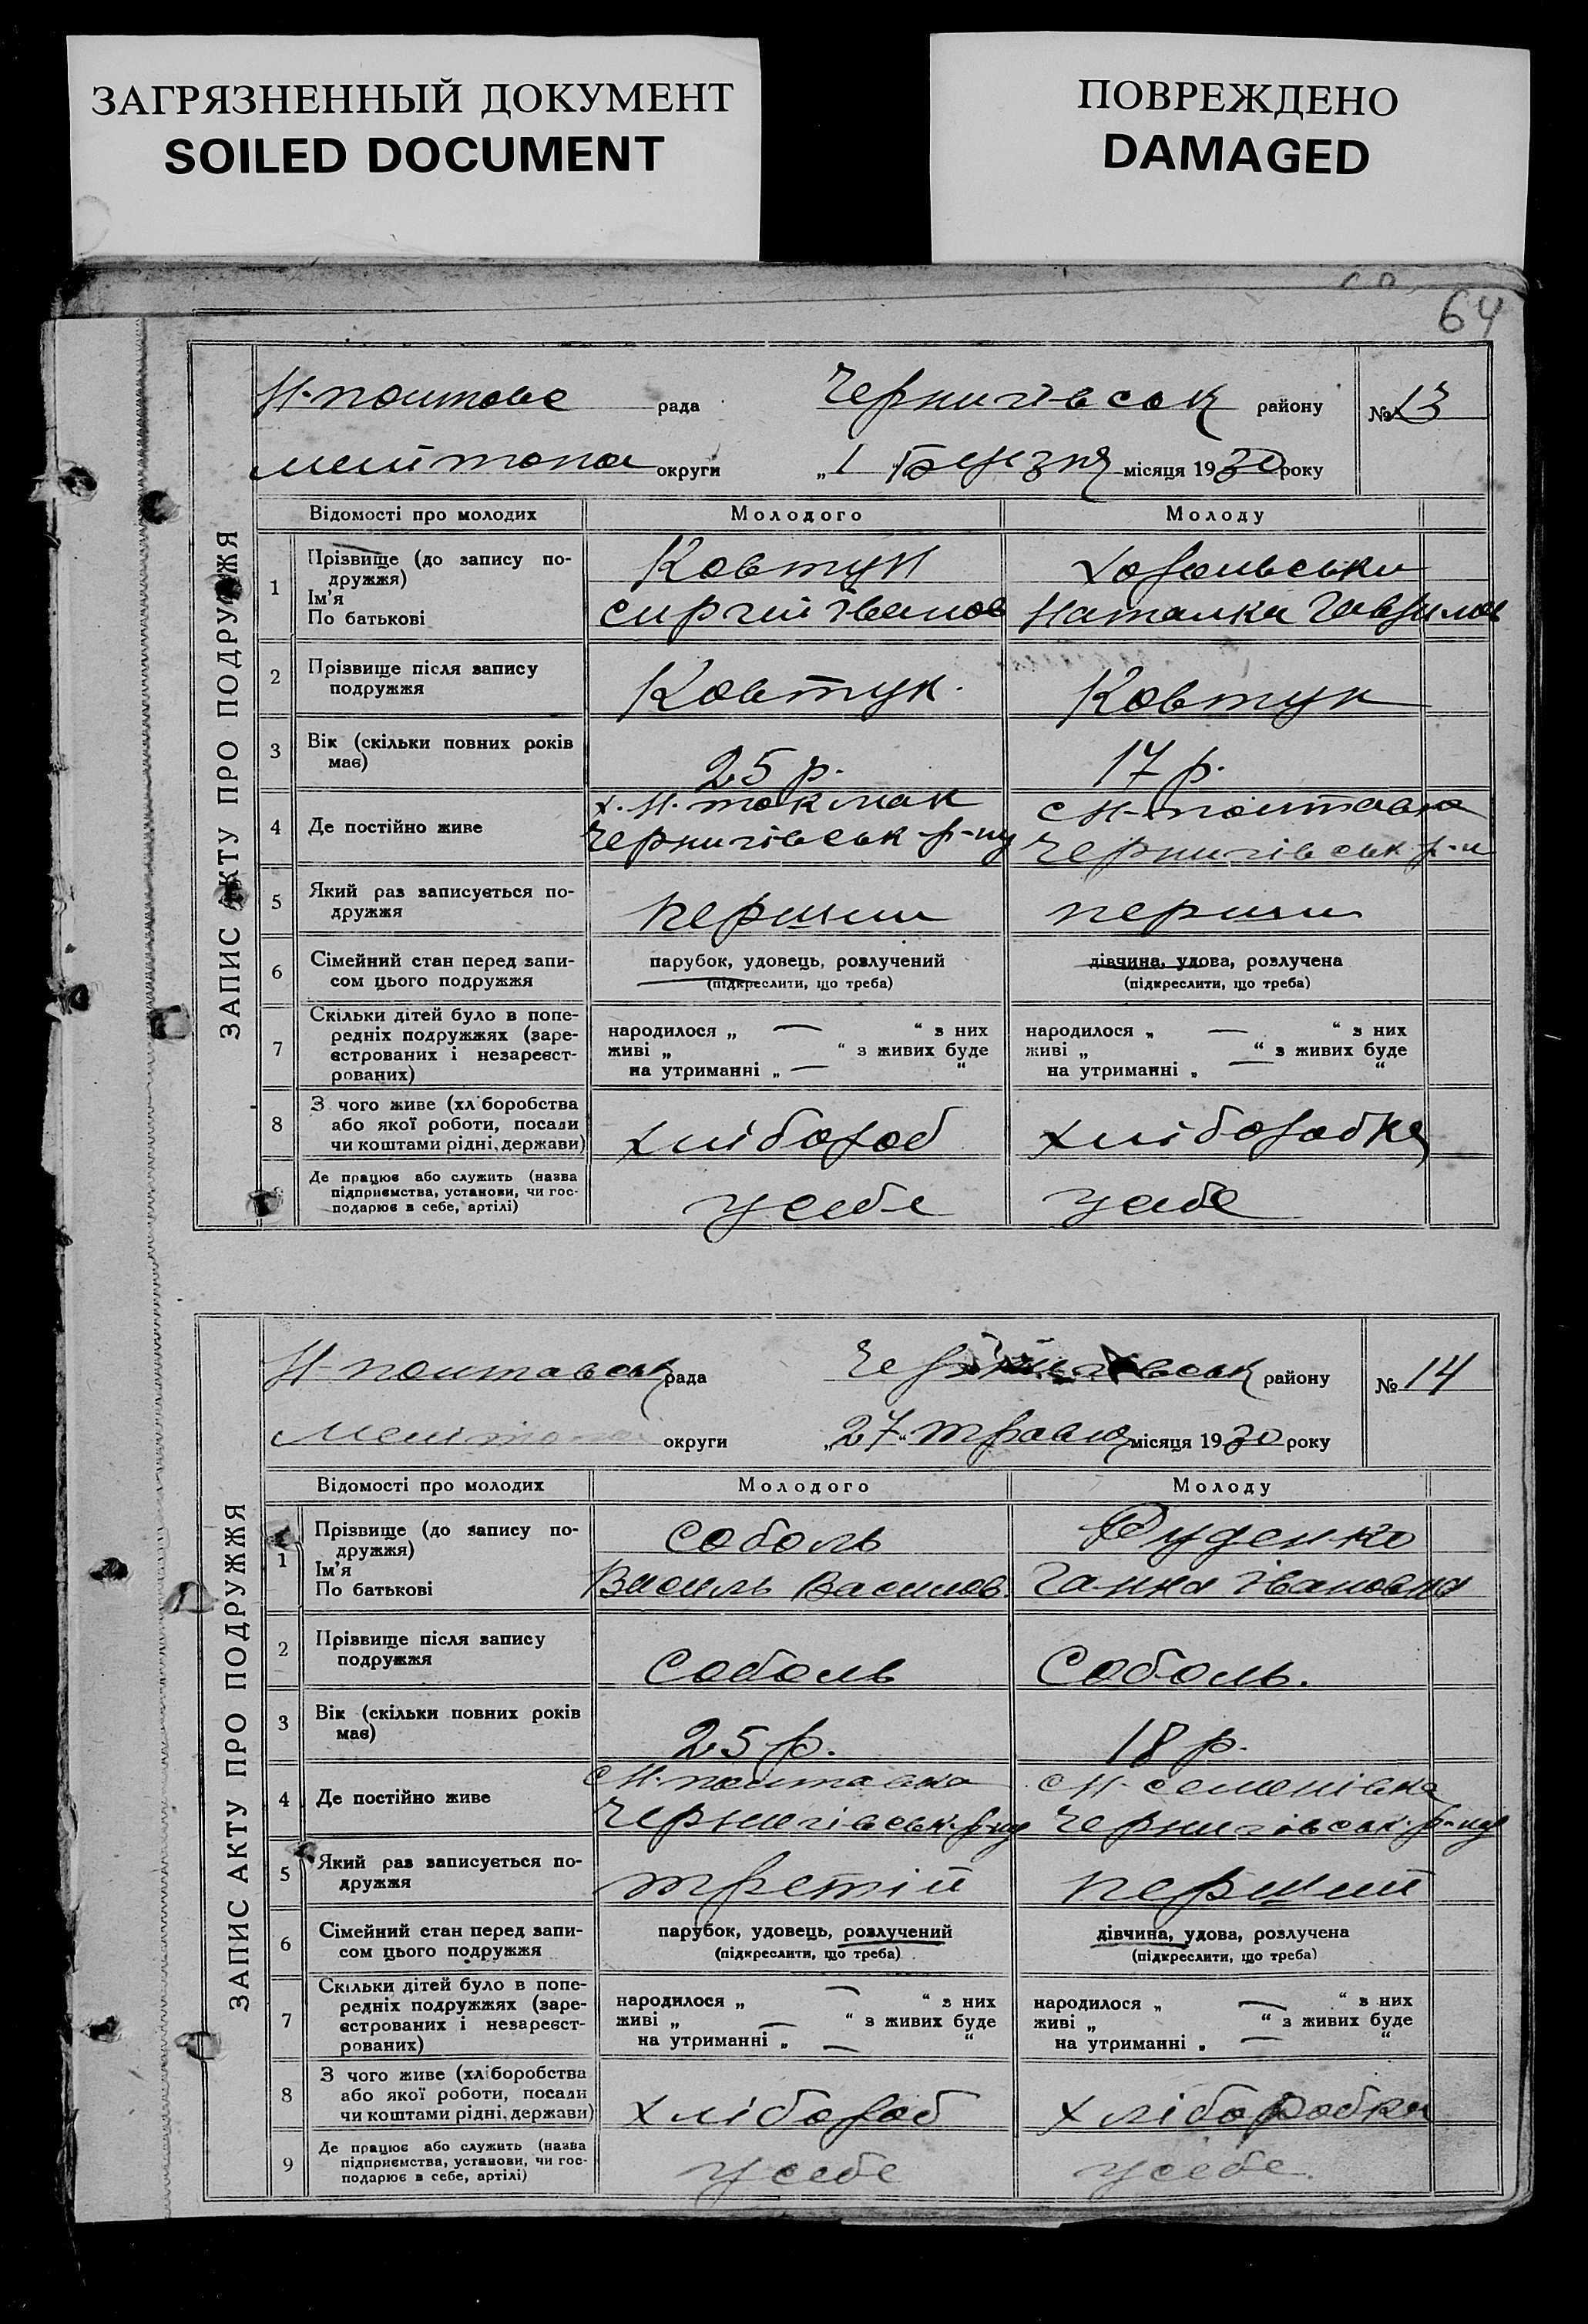 ЗАГРЯЗНЕННЫЙ ДОКУМЕНТ
SOILED DOCUMENT
ПОВРЕЖДЕНО
DAMAGED
64
ЗАПИС АКТУ ПРО ПОДРУЖЖЯ
Н-полтавс рада Чернигівськ району № 13
мелітопол округи „1 Березня місяця 1930 року
Відомості про молодих Молодого Молоду
1 Прізвище (до запису по-
дружжя)
Ім'я
По батькові
Ковтун
Сиргий Іванов
Наталка Гаврилов
2 Прізвище після запису
подружжя
Ковтун. Ковтун
3 Вік (скільки повних років
має)
25 р. 17 р.
4 Де постійно живе
х. Н. токмак
Чернигівськ р-ну
с Н-полтавка
Чернигівськ р-н
5 Який раз записується по-
дружжя
перши перши
6 Сімейний стан перед запи-
сом цього подружжя
парубок, удовець, розлучений
(підкреслити, що треба)
дівчина, удова, розлучена
(підкреслити, що треба)
7 Скільки дітей було в попе-
редніх подружжях (заре-
єстрованих і незареєст-
рованих)
народилося „ — “ з них
живі „ “ з живих буде
на утриманні „ — “
народилося „ — “ з них
живі „ “ з живих буде
на утриманні „ — “
8 З чого живе (хліборобства
або якої роботи, посади
чи коштами рідні, держави)
хлібороб хліборобка
Де працює або служить (назва
підприємства, установи, чи гос-
подарює в себе, артілі)
у себе у себе
ЗАПИС АКТУ ПРО ПОДРУЖЖЯ
Н-полтавськ рада Чернигівськ району № 14
Мелітопол округи „27“ травня місяця 1930 року
Відомості про молодих Молодого Молоду
1 Прізвище (до запису по-
дружжя)
Ім'я
По батькові
Соболь
Василь Васильов.
Руденко
Ганна Івановна
2 Прізвище після запису
подружжя
Соболь Соболь.
3 Вік (скільки повних років
має)
25 р. 18 р.
4 Де постійно живе
с Н-полтавка
Чернигівськ. р-ну
с Н-семенівка
Чернигівськ. р-ну
5 Який раз записується по-
дружжя
третій перший
6 Сімейний стан перед запи-
сом цього подружжя
парубок, удовець, розлучений
(підкреслити, що треба)
дівчина, удова, розлучена
(підкреслити, що треба)
7 Скільки дітей було в попе-
редніх подружжях (заре-
єстрованих і незареєст-
рованих)
народилося „ — “ з них
живі „ — “ з живих буде
на утриманні „ — “
народилося „ — “ з них
живі „ — “ з живих буде
на утриманні „ “
8 З чого живе (хліборобства
або якої роботи, посади
чи коштами рідні, держави)
хлібороб хліборобка
9 Де працює або служить (назва
підприємства, установи, чи гос-
подарює в себе, артілі)
у себе у себе.